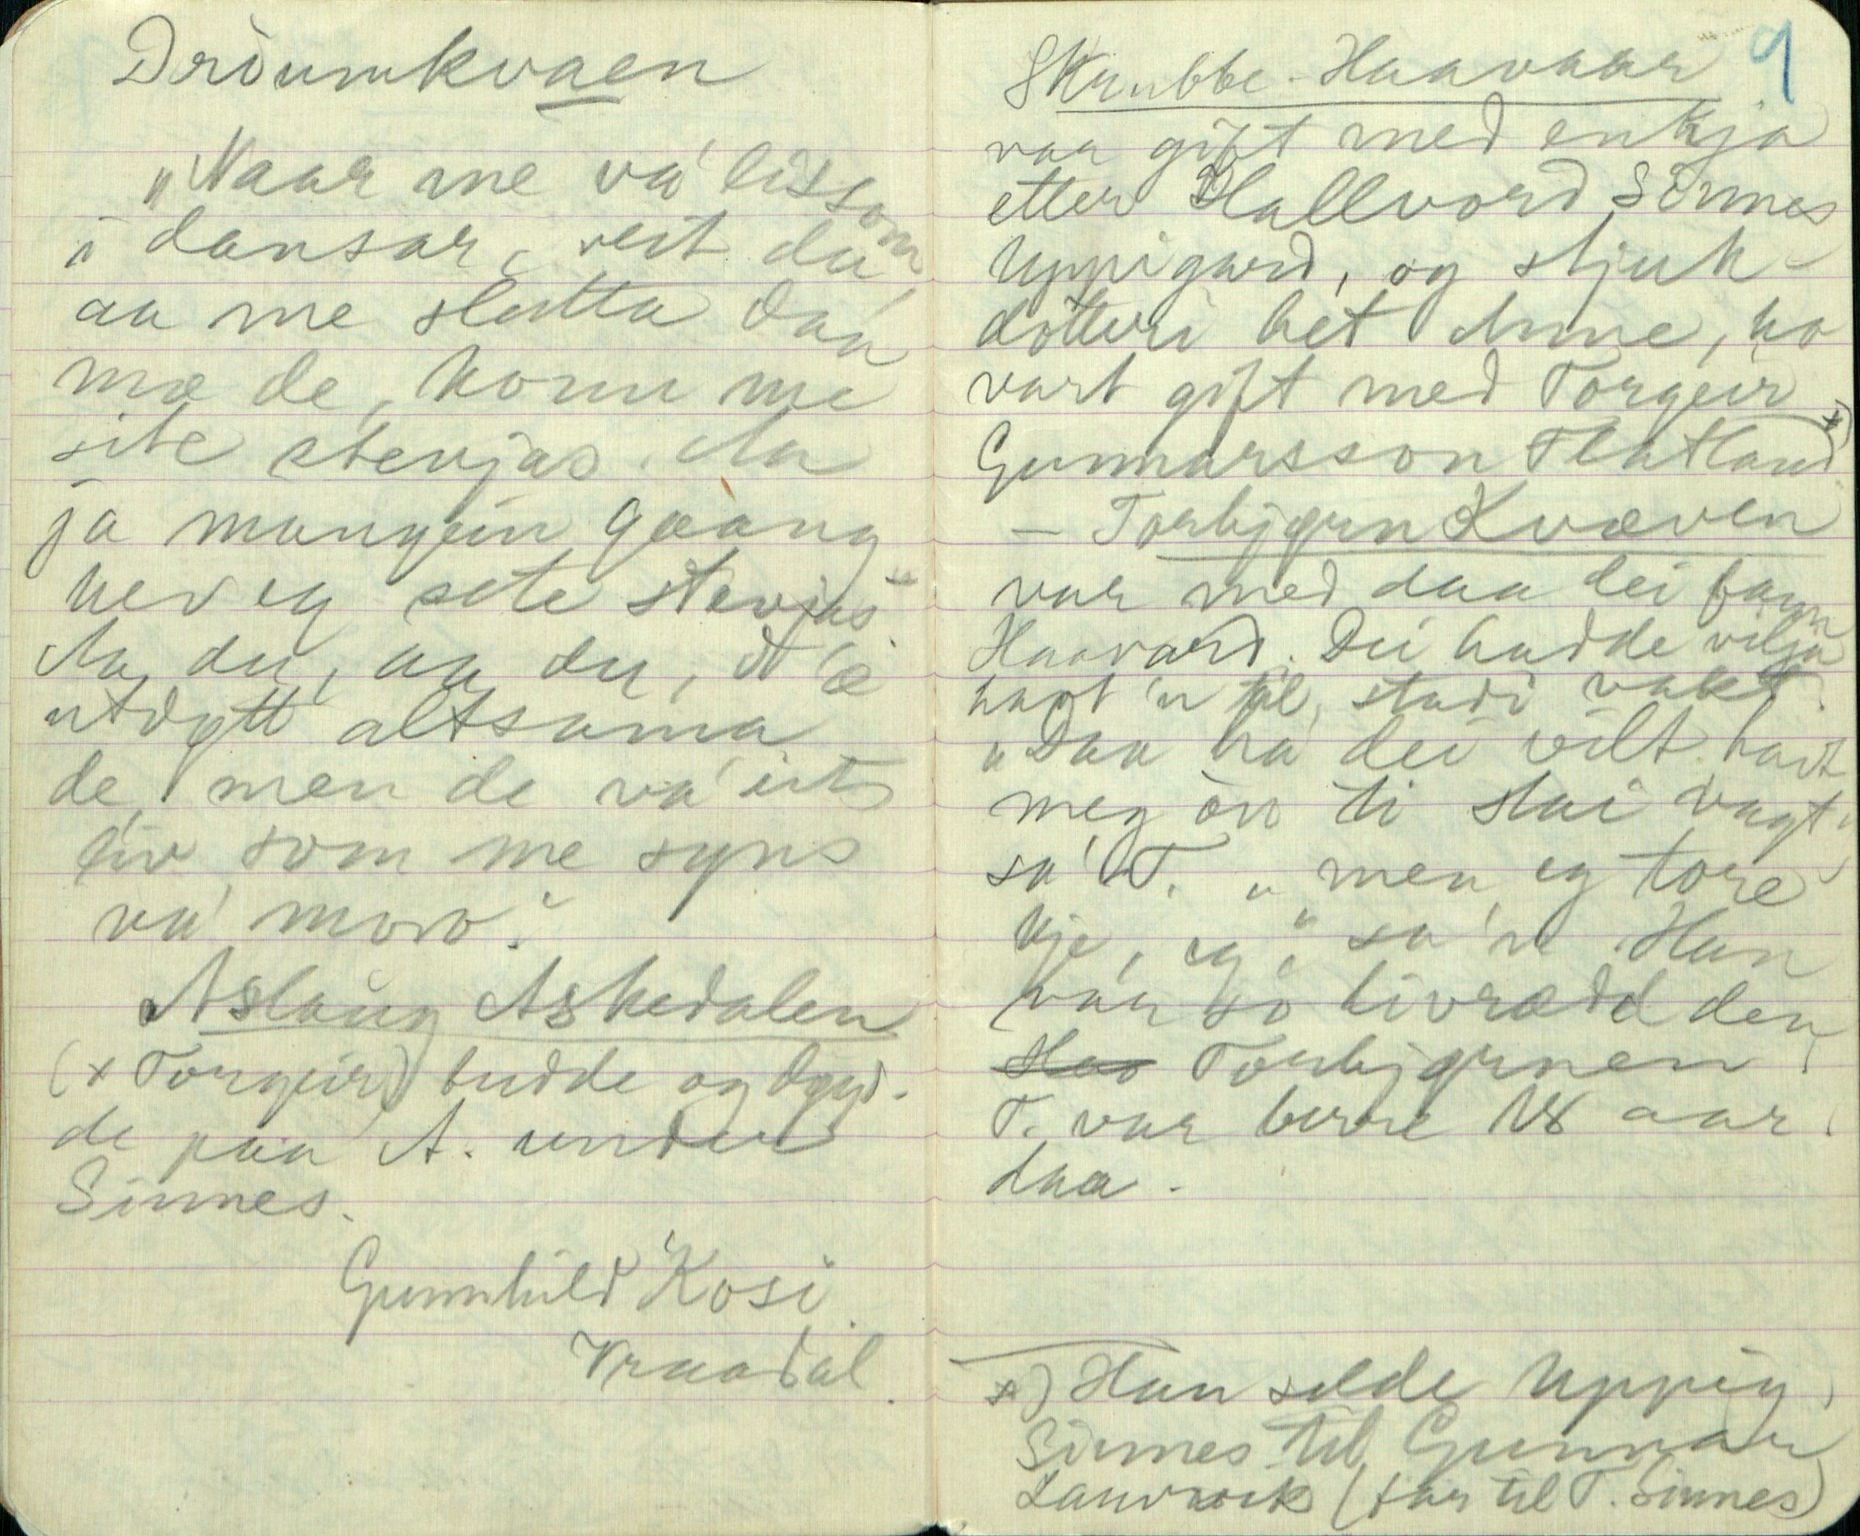 Draumkvaen
"Naar me va' lissom
i dansar, veit du,
aa me slutta daa
mæ de, konn me
site stevjas. Aa
ja mangein gaang
hev eg sete stevjas.
Aa du, aa du, d'æ
utdøtt altsama
de, men de va' eit
liv som me syns
va' moro."
Aslaug Askedalen
(x Torgeir) budde og døyd-
de paa A. under
Sinnes.
Gunnhild Kosi
Vraadal.
9
Skrubbe-Haavaar
var gift med enkja
etter Hallvord Sinnes
Uppigard, og stjuk-
dotteri het Anne, ho
vart gift med Torgeir
Gunnarsson Flatland x)
- Torbjørn Kvæven
var med daa dei fann
Haavard. Dei hadde vilja
havt 'n til, stadi vakt.
"Daa ha dei vilt havt
meg òv ti stai vagt"
sa' T. "men eg tore
kje, eg", sa'n. Han
var so livrædd den
Torbjørnen.
T. var berre 18 aar
daa.
x) Han selde Uppig.
Sinnes til Gunnar
Lauvvik (far til T. Sinnes)